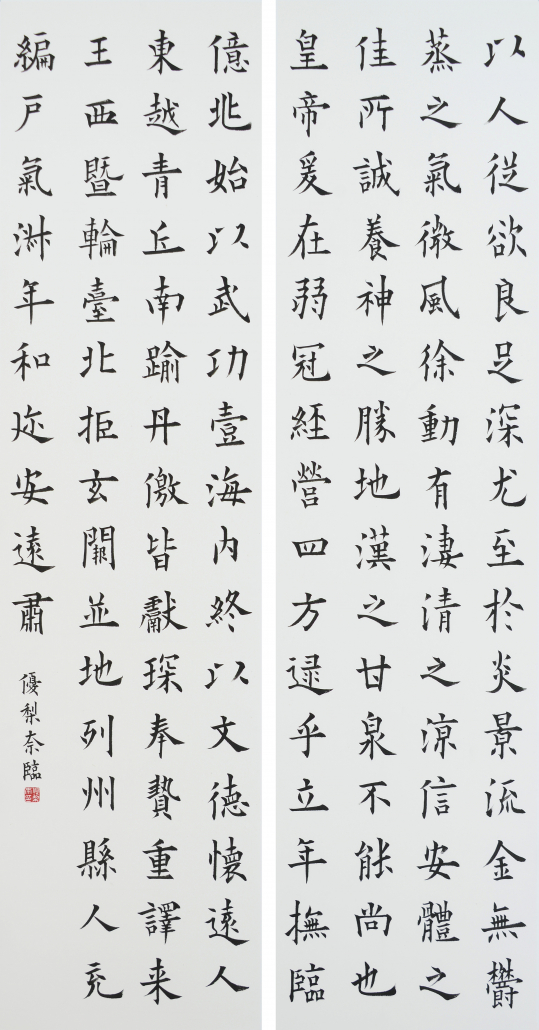 以人從欲良足深尤至於炎景流金無鬱
蒸之氣微風徐動有淒清之涼信安體之
佳所誠養神之勝地漢之甘泉不能尚也
皇帝爰在弱冠經營四方逮乎立年撫臨
億兆始以武功壹海內終以文德懷遠人
東越青丘南踰丹儌皆獻琛奉贄重譯来
王西暨輪臺北拒玄闕並地列州縣人充
編戸氣淑年和迩安遠肅
優梨奈臨